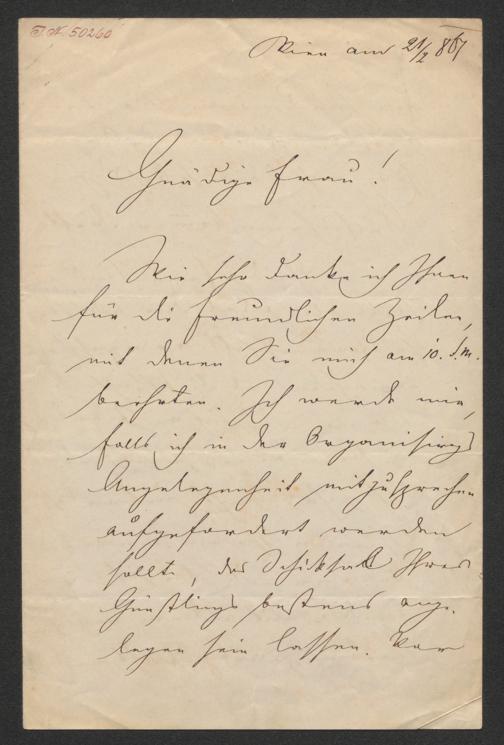 I.N. 50260
Wien am 21/2 867
Gnädige Frau!
Wie sehr danke ich Ihnen
für die freundlichen Zeilen,
mit denen Sie mich am 10. d.M.
beehrten. Ich werde mir,
falls ich in der Organisirungs
Angelegenheit mitzusprechen
aufgefordert werden
sollte, das Schicksal Ihres
Günstlings bestens ange-
legen sein lassen. Vor